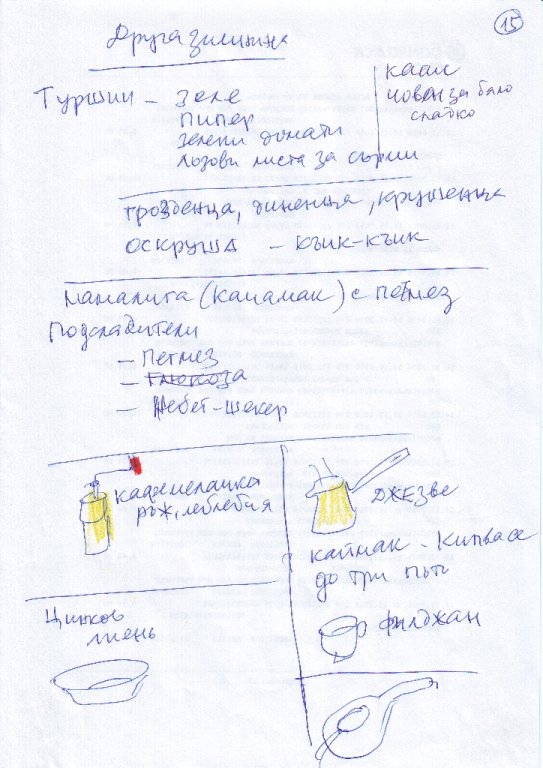 15
Друга зимнина
Туршии – зеле
пипер
зелени домати
лозови листа за сърми
каал
човен за бяло
сладко
грозденца, диненца, крушенца
оскруша – къик-къик
мамалига (качамак) с петмез
Подсладители
– Петмез
– Глюкоза
– Небет-шекер
кафемелачка
ръж, леблебия
Джезве
каймак - Кипва се
до три пъти
филджан
Цинков
леген